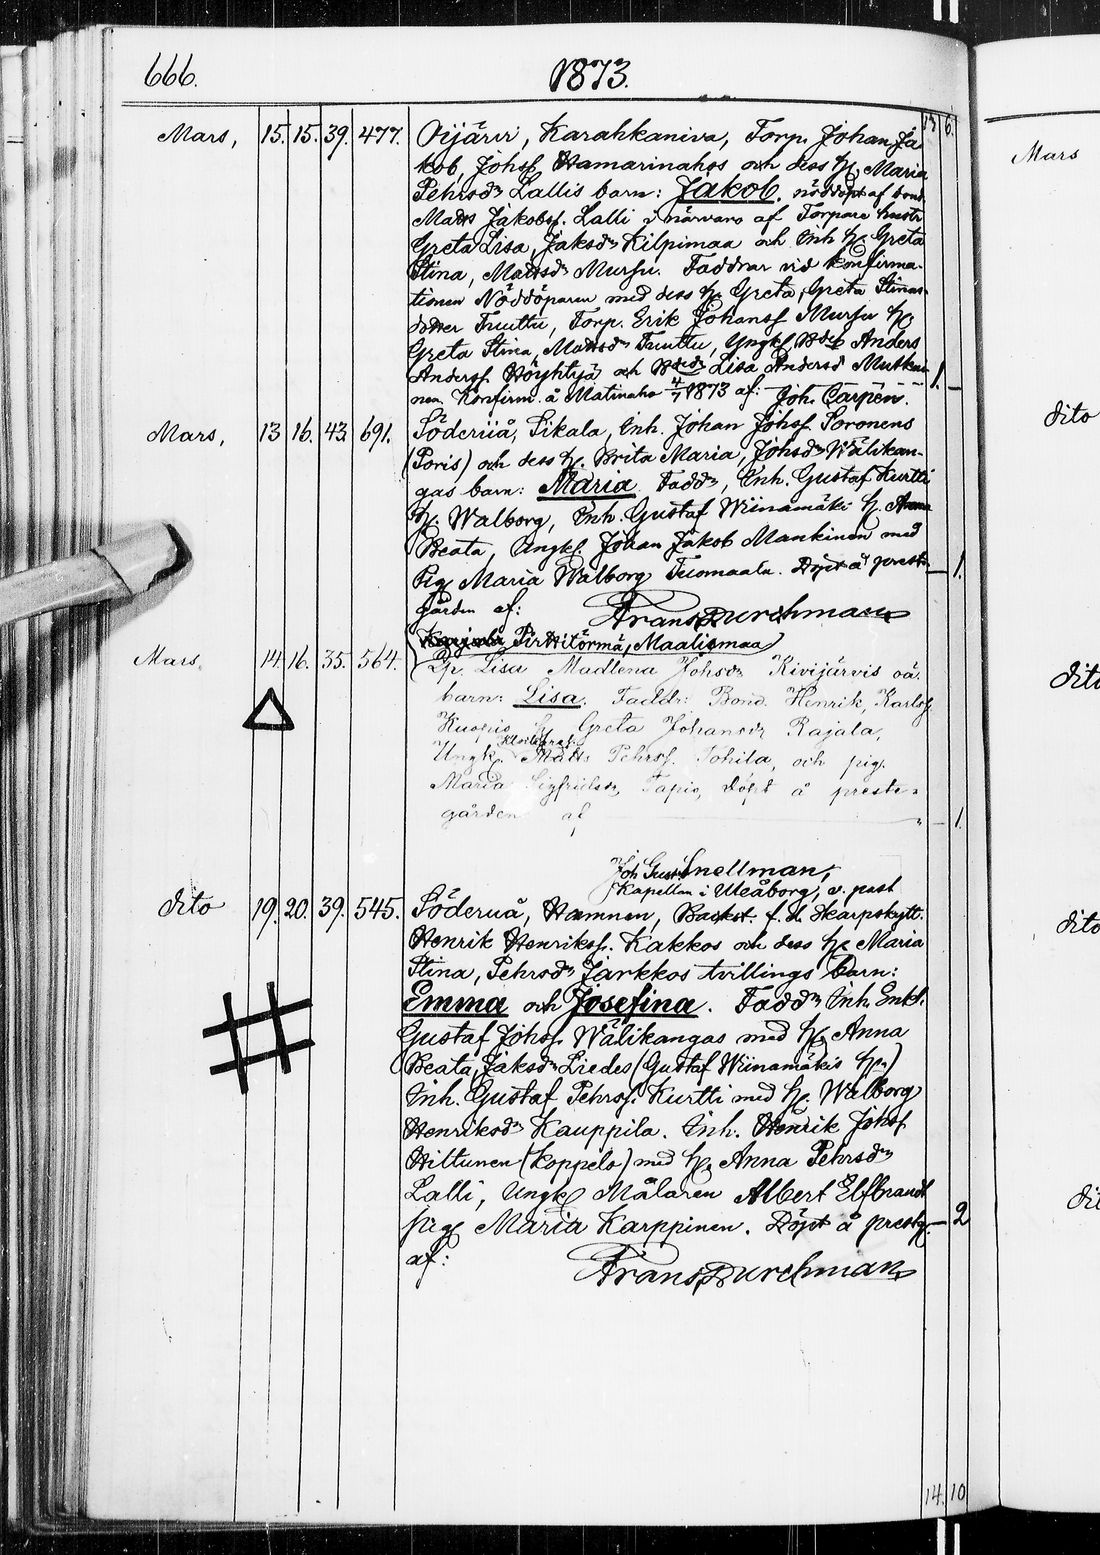 666.
1873.
13. 6.
Mars, 15. 15. 39. 477. Oijärvi, Karahkaniva, Torp. Johan Ja
kob, Johsf. Hamarinahos och dess h. Maria
Pehrsdr Lallis barn: Jakob. nöddöpt af bond.
Matts Jakobsf. Lalli i närvaro af Torpare hustr
Greta Lisa, Jaksdr Kilpimaa och Inh. h. Greta
Stina, Mattsdr Mursu. Faddrar vid konfirma-
tionen Nöddöparen med dess h. Greta, Greta Stinas-
dotter Tuuttu, Torp. Erik Johansf. Mursu h.
Greta Stina, Mattsdr Tuuttu, Ungk. Anders
Andersf. Höyhtyä och Lisa Andersd Mutkai-
nen. Konfirm. å Matinaho 4/7 1873 af: Joh. Carpén. 1.
Mars, 13 16. 43. 691. Söderiiå, Sikala, Inh. Johan Johsf. Soronens
(Poris) och dess h. Brita Maria, Johsdr Wälikan-
gas barn: Maria. Faddr, Inh. Gustaf Kurtti
h. Walborg, Inh. Gustaf Wiinamäki h. Anna
Beata, Ungk. Johan Jakob Mankinen med
Pig. Maria Walborg Tuomaala. Döpt å prest- 1.
gården af: Frans Durchman
Pirttitörmä, Maalismaa
Mars. 14. 16. 35. 564. Pp. Lisa Madlena Johsdr Kivijärvis oä.
barn: Lisa. Faddr: Bond. Henrik, Karlsf
Kuopio h. Greta Johansdr Rajala,
Ungk. Matts Pehrsf. Tohila, och pig.
Maria Sigfridsdr Tapio, döpt å preste-
gården af 1.
Joh Gust Snellman,
Kapellan i Uleåborg, v. past
dito 19. 20. 39. 545. Söderuå, Hamnen, Backst. f. d. Skarpskytt.
Henrik Henriksf. Kakkos och dess h. Maria
Stina, Pehrsdr Jarkkos tvillings barn:
Emma och Josefina. Faddr Inh. Enkl.
Gustaf Johsf. Wälikangas med h. Anna
Beata, Jaksdr Liedes (Gustaf Wiinamäkis h.)
Inh. Gustaf Pehrsf. Kurtti med h. Walborg
Henriksdr Kauppila. Inh. Henrik Johsf
Hiltunen (Koppelo) med h. Anna Pehrsdr
Lalli, Ungk Målaren Albert Elfbrandt
pig Maria Karppinen. Döpt å prestg. 2
af: Frans Durchman
14. 10
Mars
dito
dito
dito